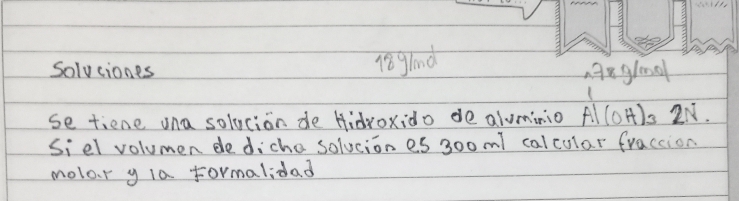 18g/mol
Soluciones
78g/mol
Se tiene una solución de Hidroxido de aluminio Al(OH)3 2N.
Si el volumen de dicha solución es 300 ml calcular fraccion
molar y la Formalidad